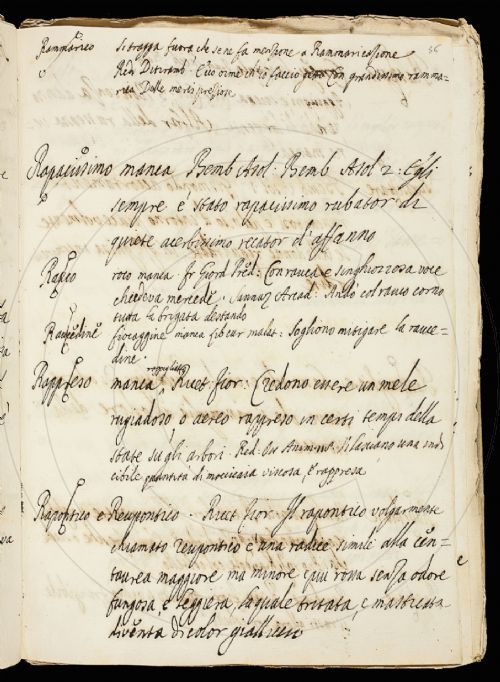 Rammarico si trappa fuora che se ne fa menzione a Rammaricazione 56
Red: Ditiramb: E io oimè ch'io faccio getto con grandissimo ramma-
rico Delle merci preziose
Rapacissimo manca Bemb Asol: Bemb Asol 2: Egli
sempre è stato rapacissimo rubator di
quiete acerbissimo recator d'affanno
Rauco roco manca fr Giord Pred: Con rauca e singhiozzosa voce
chiedeva mercede. Sannaz Arcad: Andò col rauco corno
tutta la brigata destando
Raucedine fiocaggine manca lib cur malat: Sogliono mitigare la rauce-
dine.
Rappreso manca rappigliato Ricet fior: Credono essere un mele
rugiadoso o aereo rappreso in certi tempi della
state su gli arbori. Red: Os Anim: Vi lasciano una
cibile quantità di mocicaia viscosa, e rappresa
Rapontico e Reupontico. Ricet fior: Il rapontico volgarmente
chiamato reupontico è una radice simile alla cen-
taurea maggiore ma minore e più rossa senza odore
fungosa, e leggiera, la quale tritata, e masticata
diventa di color gialliccio